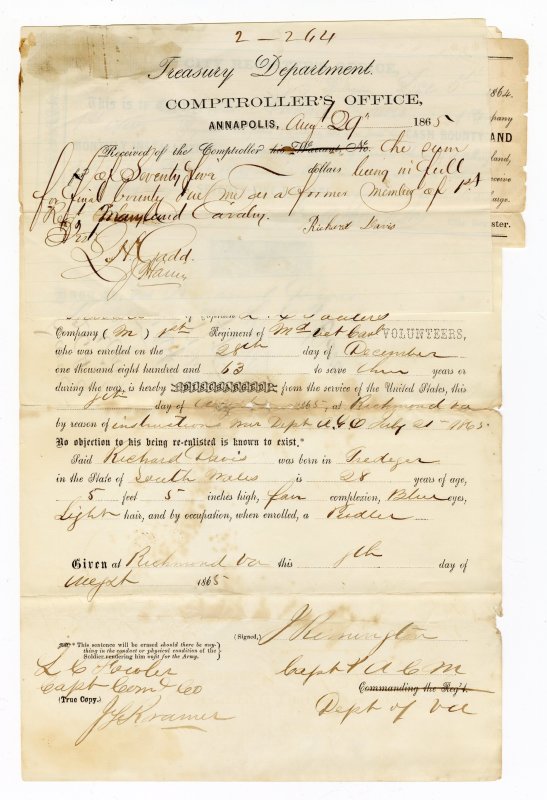 2-264
Treasury Department.
COMPTROLLER'S OFFICE,
ANNAPOLIS, Aug 29" 1865
1864.
Received of the Comptroller his Warrant, No. the sum
of Seventy four dollars being in full
for final bounty due me as a former member of 1st
Regt Maryland Cavalry.
Richard Davis
Company (M) 1st Regiment of Md Vet Cav VOLUNTEERS,
who was enrolled on the 28th day of December
one thousand eight hundred and 63 to serve three years or
during the war, is hereby DISCHARGED from the service of the United States, this
day of 1865, at Richmond Va
by reason of instructions War Dept A.G.O July 21st 1865
No objection to his being re-enlisted is known to exist.*
Said Richard Davis was born in Tredeger
in the State of South Wales is 28 years of age,
5 feet 5 inches high, fair complexion, Blue eyes,
Light hair, and by occupation, when enrolled, a
Given at Richmond Va this 8th day of
1865
(Signed,)
* This sentence will be erased should there be any-
thing in the conduct or physical condition of the
Soldier rendering him unfit for the Army.
Capt A C M
Capt Comd Co
Commanding the Reg't.
(True Copy.)
Dept of Va
J G Kramer